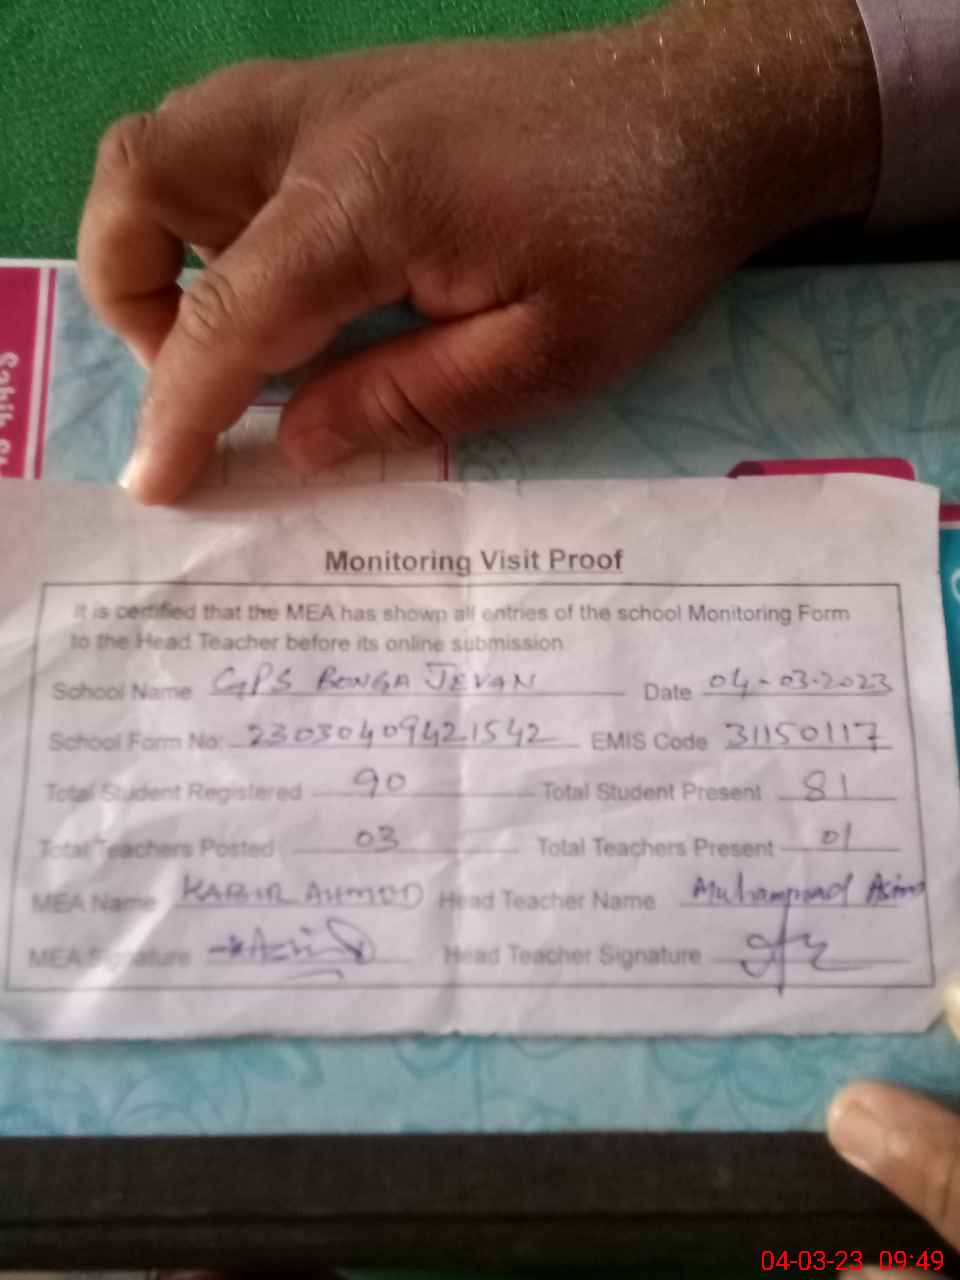 Sabih
Monitoring Visit Proof
It is certified that the MEA has shown all entries of the school Monitoring Form
to the Head Teacher before its online submission
School Name GPS BONGA JEVAN Date 04-03-2023
School Form No: 23030409421542 EMIS Code 31150117
Total Student Registered 90 Total Student Present 81
Total Teachers Posted 03 Total Teachers Present 01
MEA Name KABIR AHMED Head Teacher Name Muhammad Asim
MEA Signature Head Teacher Signature
04-03-23 09:49